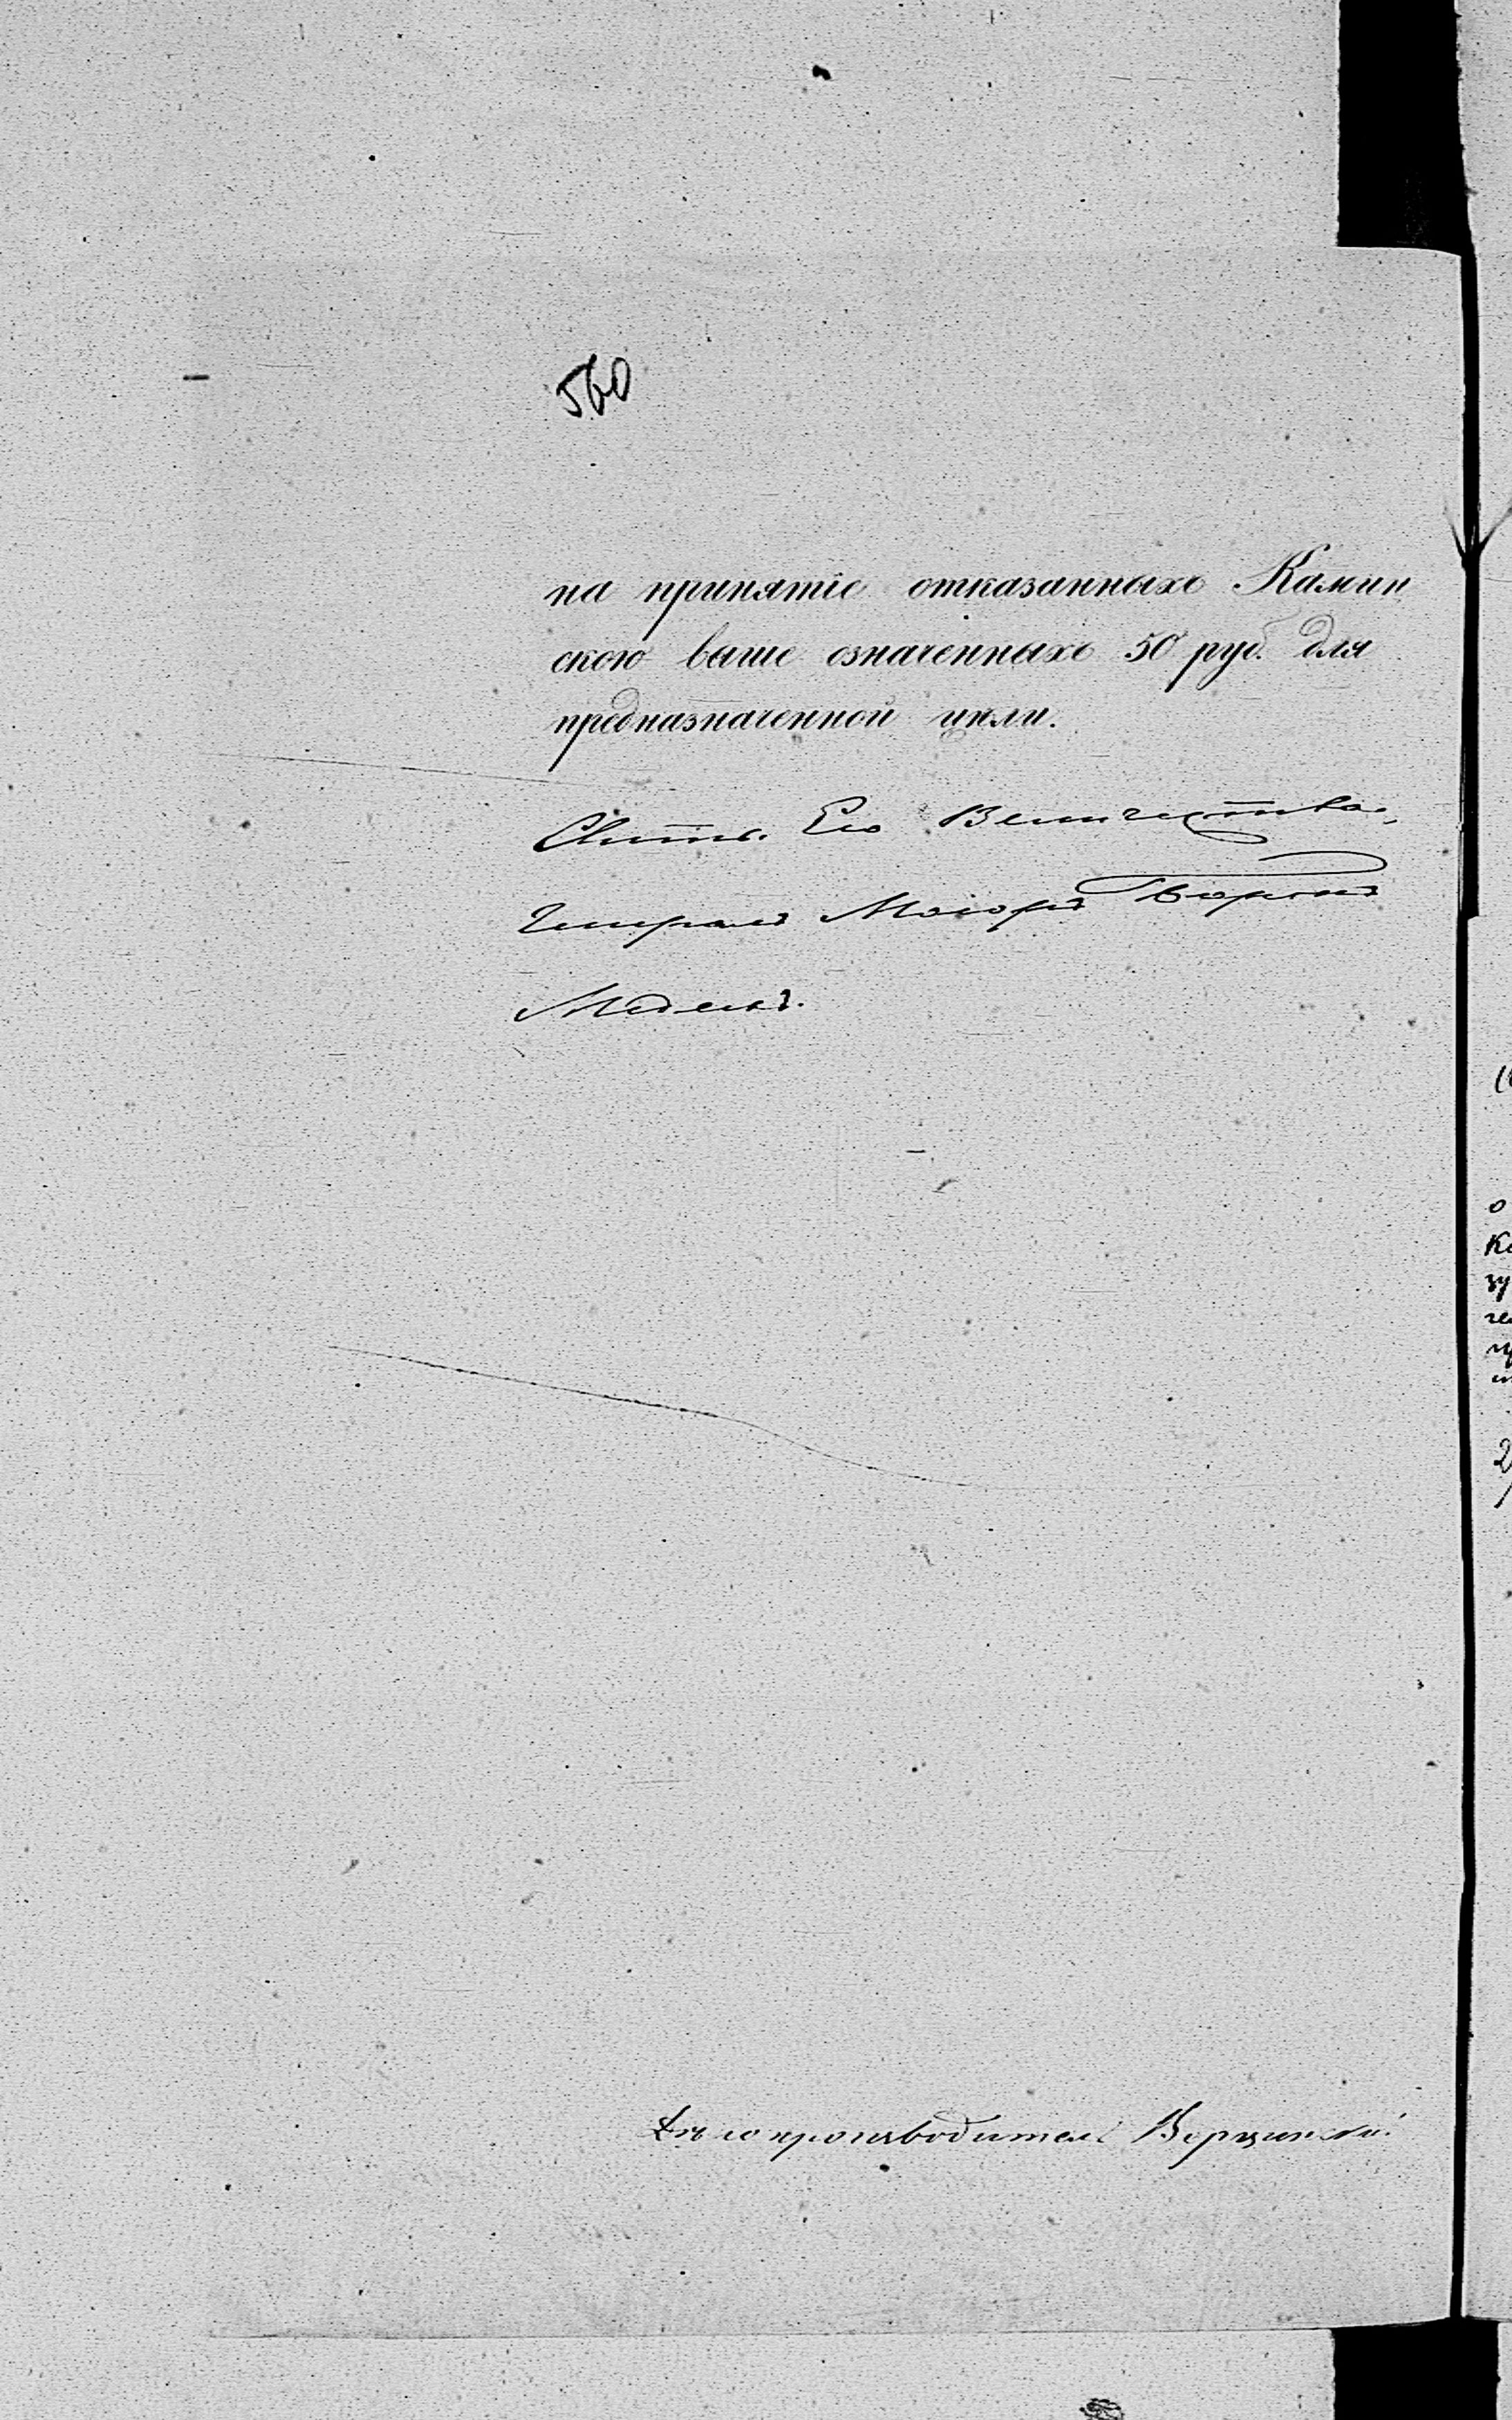 560
на принятіе отказанныхъ Камин
скою выше означенныхъ 50 руб. для
предназначенной цѣли.
Свиты Его Величества,
Генералъ Маіоръ Баронъ
Медемъ.
Дѣлопроизводитель